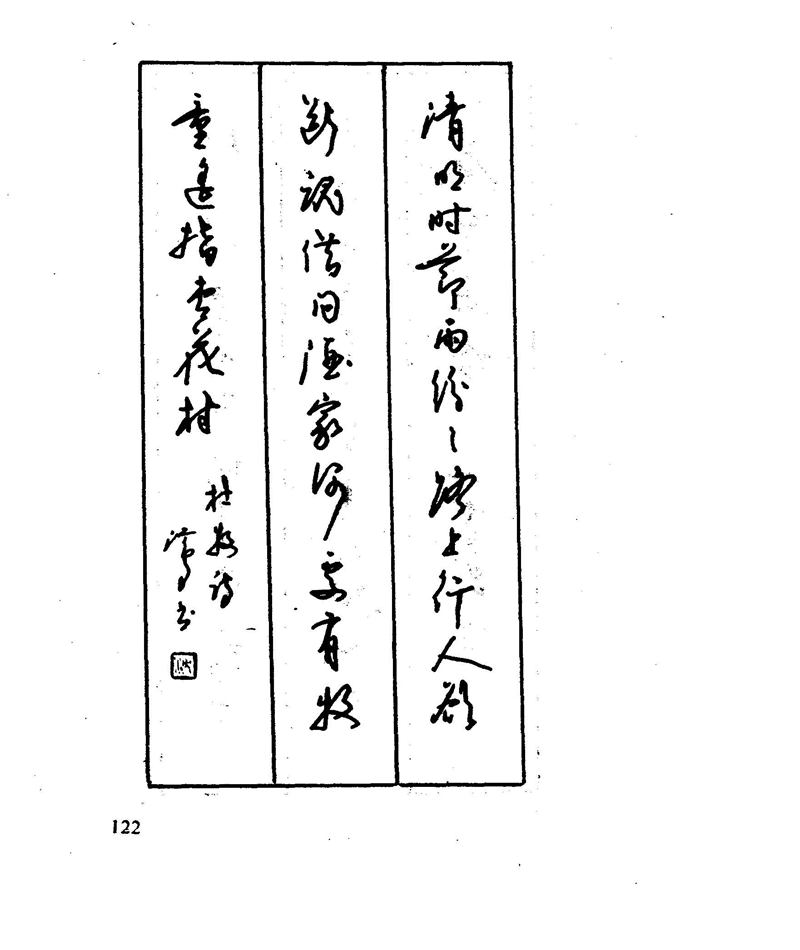 清明时节雨纷〻路上行人欲
断魂借问酒家何处有牧
童遥指杏花村
杜牧诗
书
122